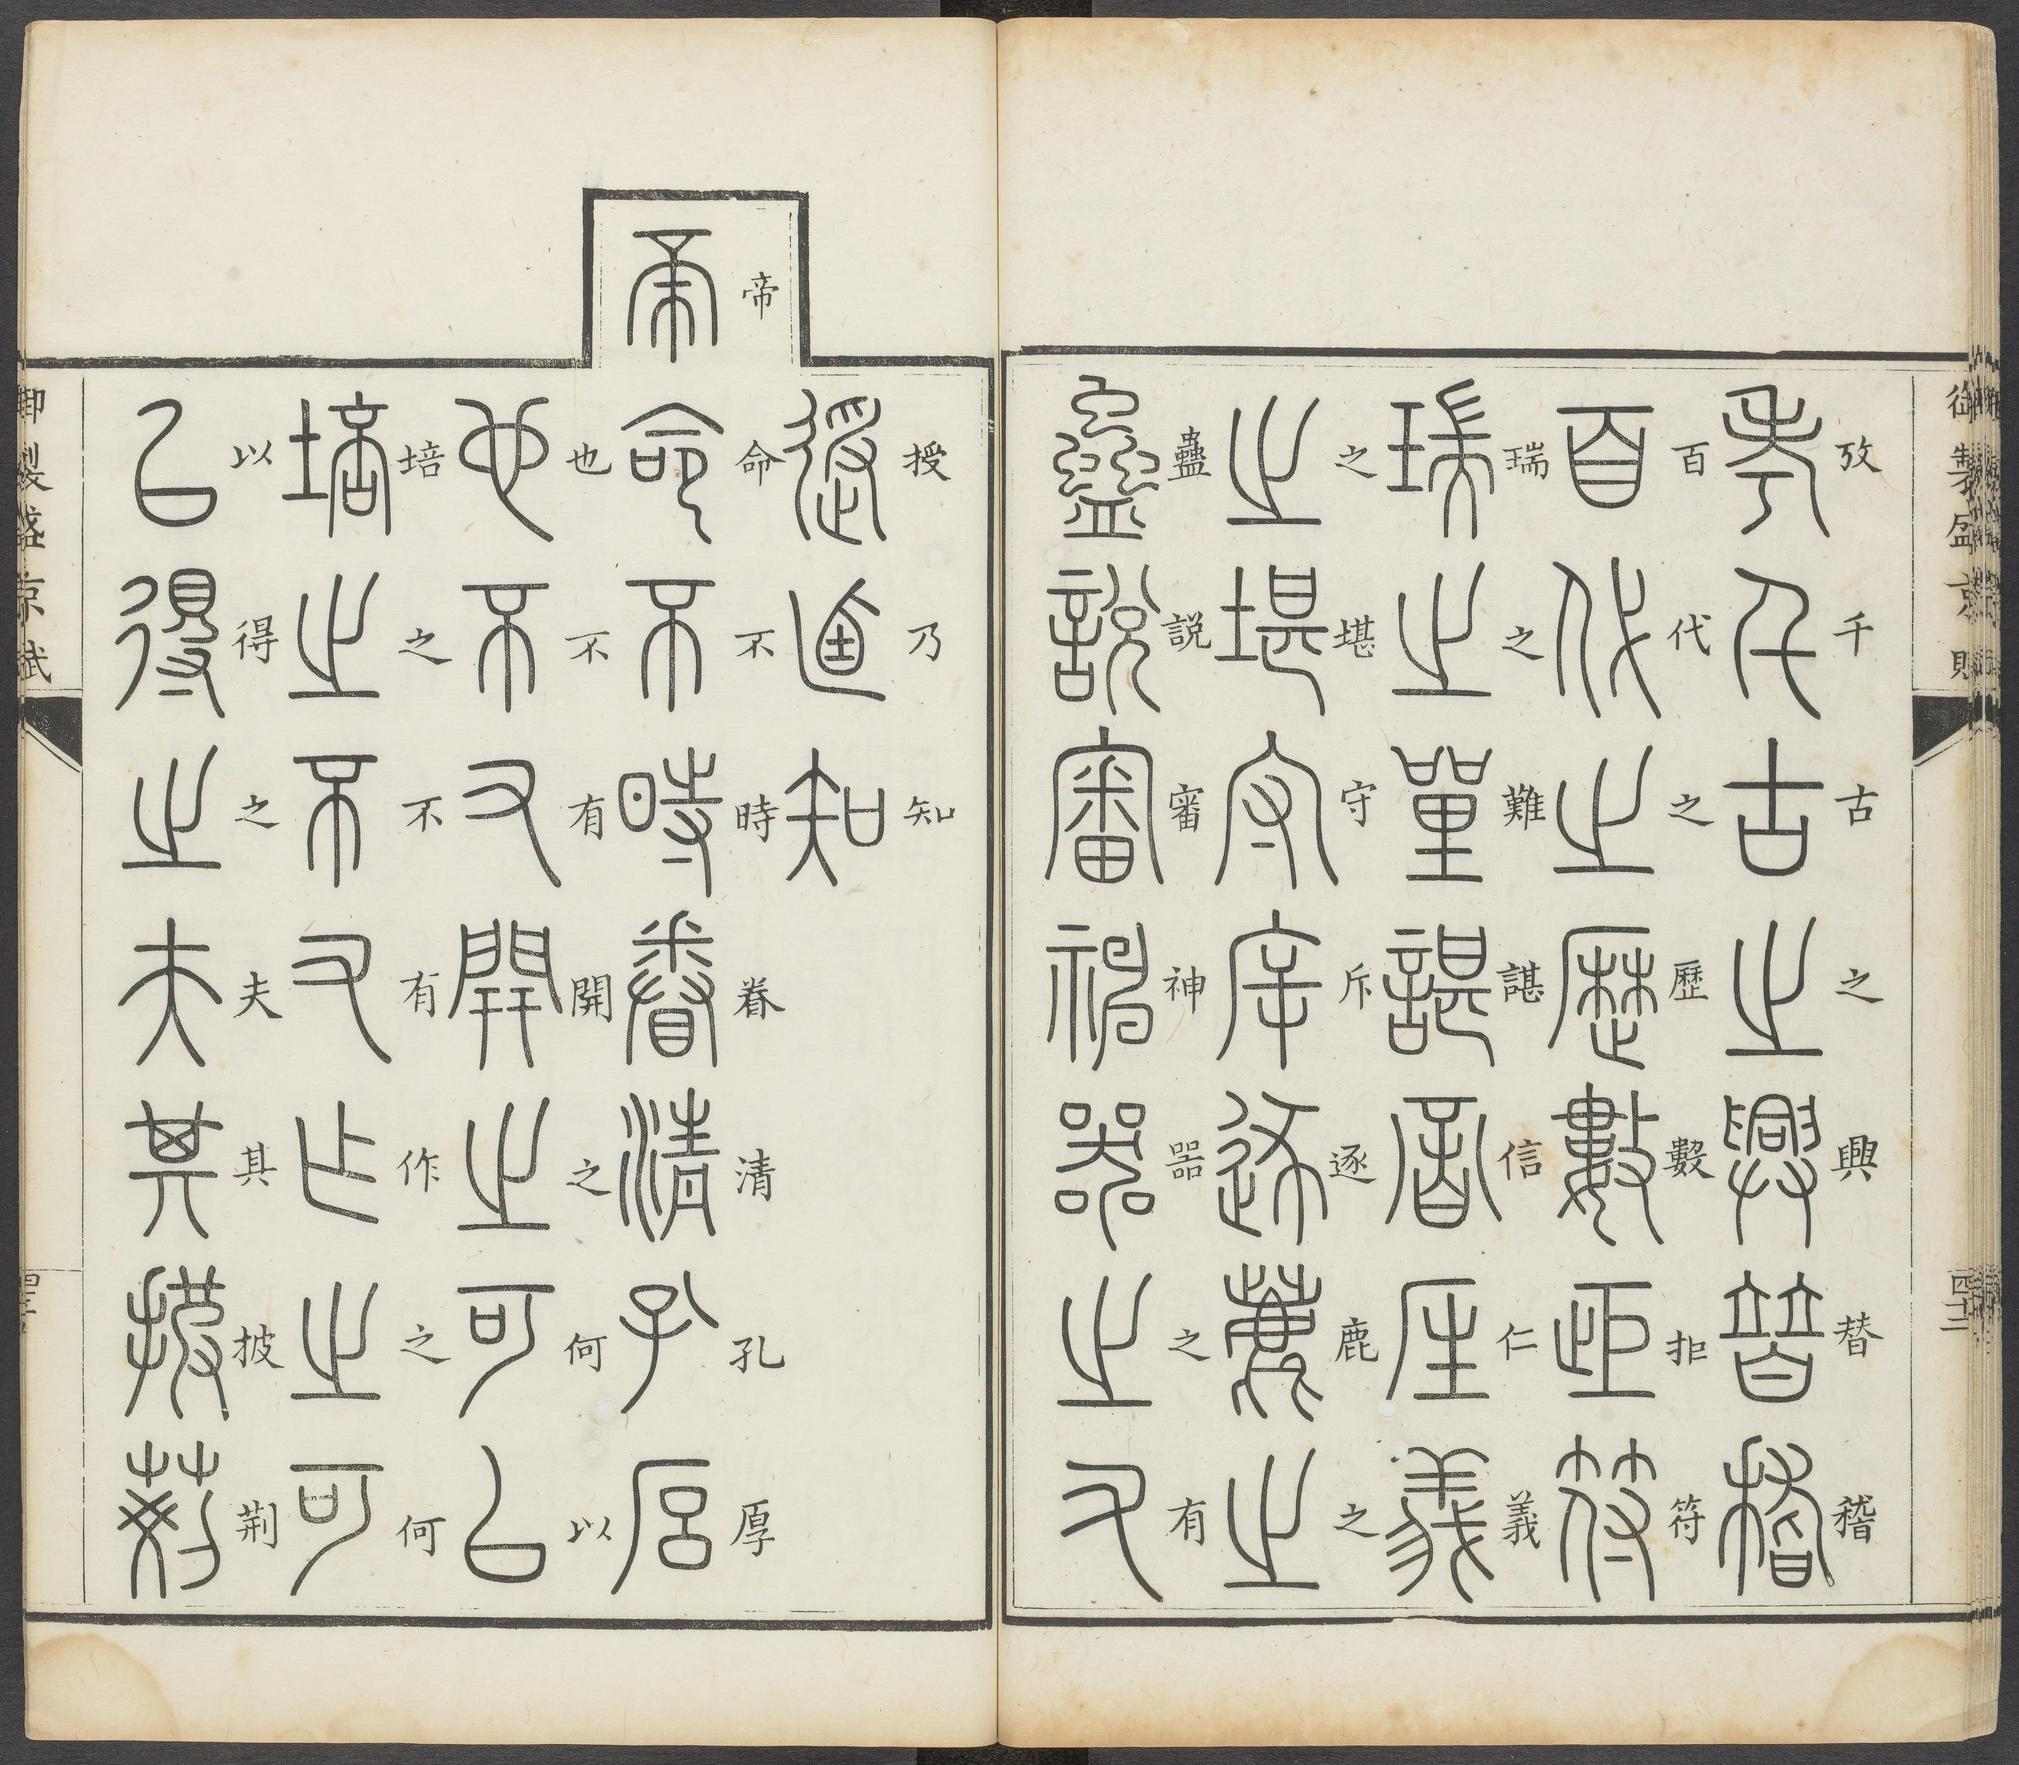 御製盛京賦 四十二
攷千古之興替稽
百代之歷數拒符
瑞之難諶信仁義
之堪守斥逐鹿之
蠱説審神器之有
授乃知
帝命不時眷清孔厚
也不有開之何以
培之不有作之何
以得之夫其披荆
御製盛京賦